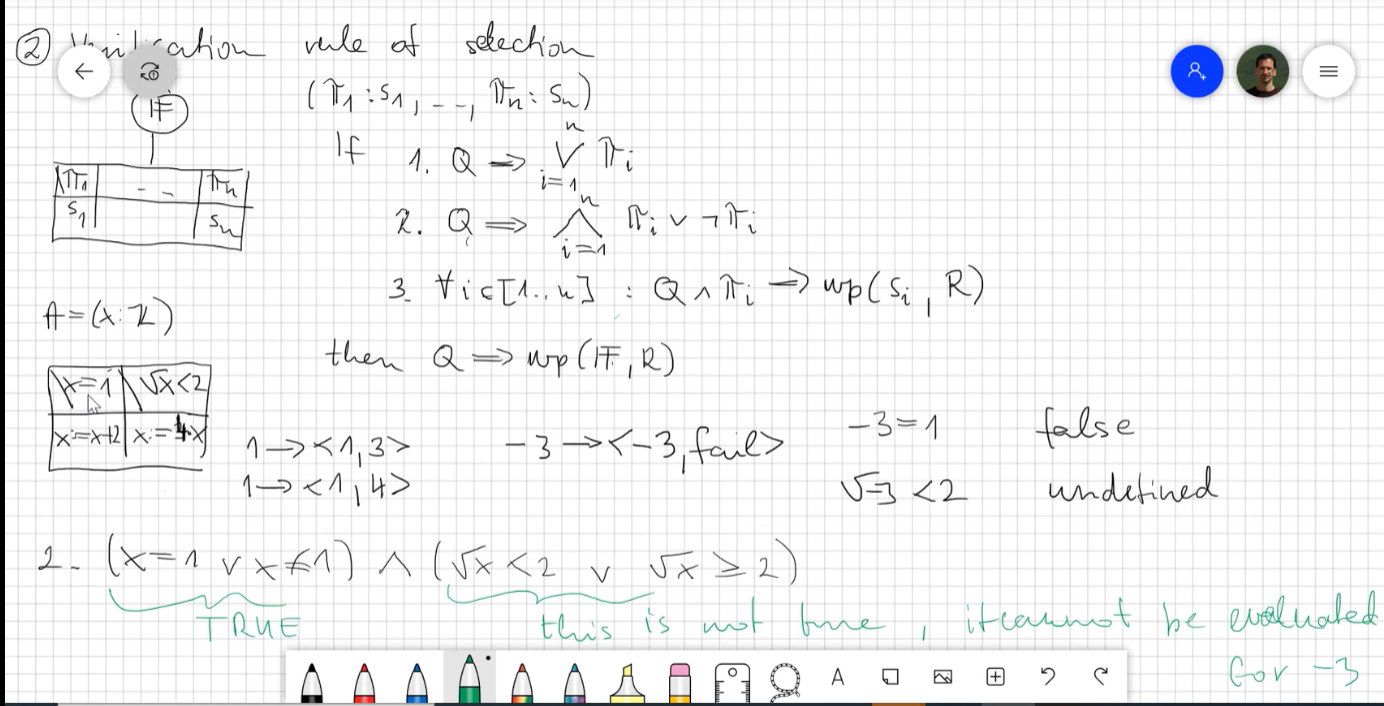 ② Verification rule of selection
(π₁:S₁, --, πₙ:Sₙ)
IF
If 1. Q ⇒ ⋁ᵢ₌₁ⁿ πᵢ
π₁ -- πₙ
S₁ Sₙ
2. Q ⇒ ⋀ᵢ₌₁ⁿ πᵢ ∨ ¬πᵢ
3. ∀i∈[1..n] : Q ∧ πᵢ ⇒ wp(Sᵢ, R)
A=(x:ℤ)
then Q ⇒ wp(IF, R)
x=1 √x<2
x:=x+2 x:=4x
1→<1,3> -3→<-3,fail> -3=1 false
1→<1,4> √-3 <2 undefined
2. (x=1 ∨ x≠1) ∧ (√x <2 ∨ √x ≥ 2)
TRUE this is not true, it cannot be evaluated
for -3
A